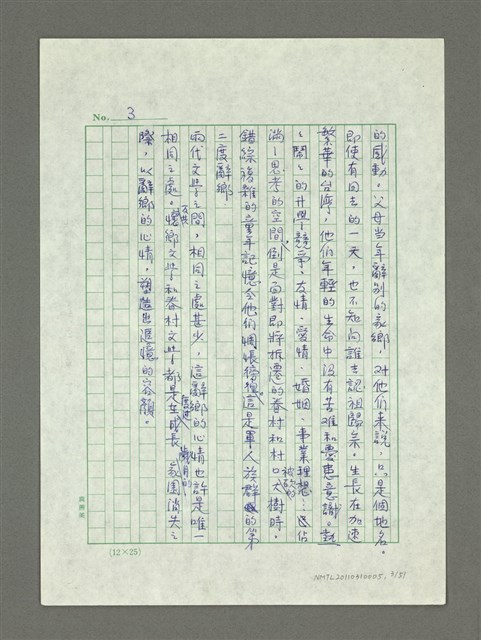 No. 3
的感動。父母当年辭别的家鄉，对他们来說，只是個地名。
即使有回去的一天，也不知向誰去認祖歸宗。生長在加速
繁華的台灣，他们年輕的生命中没有苦难和憂患意識。熱
ㄑ鬧ㄑ的升學競争、友情、愛情、婚姻、事業理想…占佔
滿ㄑ思考的空間，倒是面對即將拆遷的眷村和村口被砍的大樹時，
錯綜複雜的童年記憶令他们惆悵徬徨。這是軍人族群的第
二度辭鄉。
兩代文學之間，相同之處甚少，這辭鄉的心情也許是唯一
相同之處。懷鄉文學和眷村文學都是在成長歲月的家園消失之
際，以辭鄉的心情，塑造追憶的容顏。
(12×25)
NMTL20110410005, 3/51